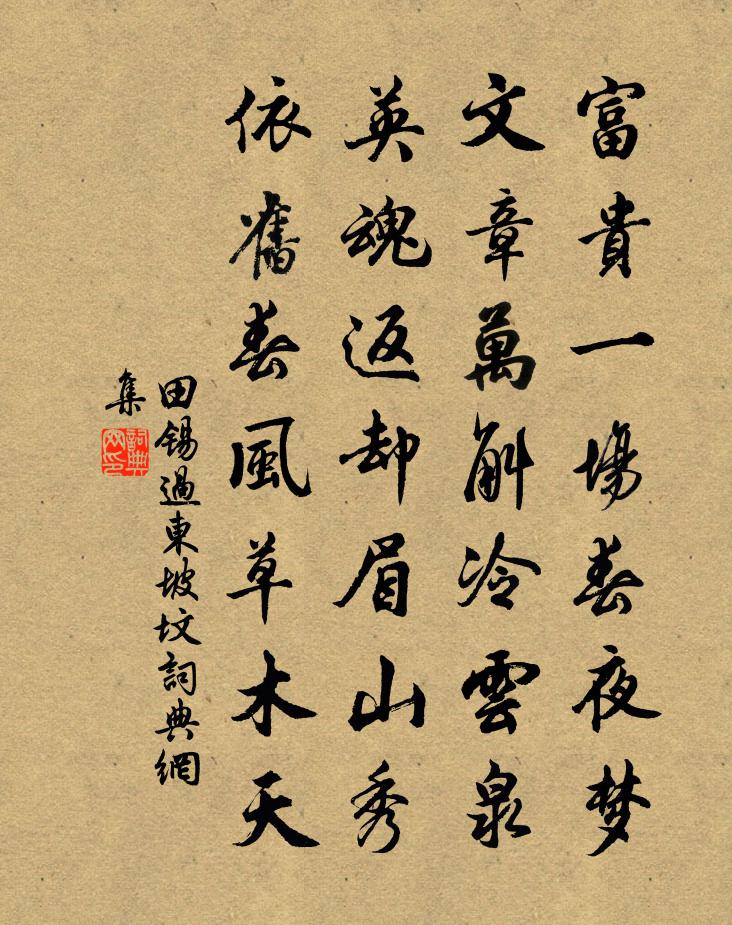 富貴一場春夜梦
文章萬斛冷雲泉
英魂返却眉山秀
依舊春風草木天
田錫過東坡坟詞典網
集
詞典
网印